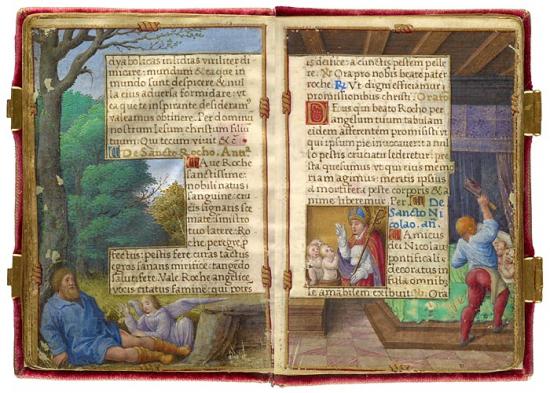 dyabolicas insidias viriliter di
micare: mundum & ea que in
mundo sunt despicere & nul
la eius aduersa formidare: vt
ea que te inspirante desideram9
valeamus obtinere. Per dominu
nostrum Iesum christum filiu
tuum. Qui tecum viuit & c̃
De Sancto Rocho. Ana.
Aue Roche
sanctissime:
nobili natus
sanguine: cru
cis signaris sce
mate: sinistro
tuo latere. Ro
che, peregre, p
fectus: pestis fere curas tactus
egros sanas mirifice: tangedo
salutifere. Vale Roche angelice
vocis citatus famine: qui potes
es deifice: a cunctis pestem pelle
re. Ora pro nobis beate pater
roche. Vt digni efficiamur
promissionibus christi. Oratio
Deus qui beato Rocho per
angelum tuum tabulam
eidem afferentem promisisti vt
qui ipsum pie inuocauerit: a nul
lo pestis cruciatu lederetur: pre
sta quesumus vt: qui eius memo
riam agimus: meritis ipsius
a mortifera peste corporis & a
nime liberemur. Per. De
Sancto Ni
colao. an.
Amicus
dei Nicolaus
pontificali
decoratus in
fula omnib9
se amabilem exibuit. Ora